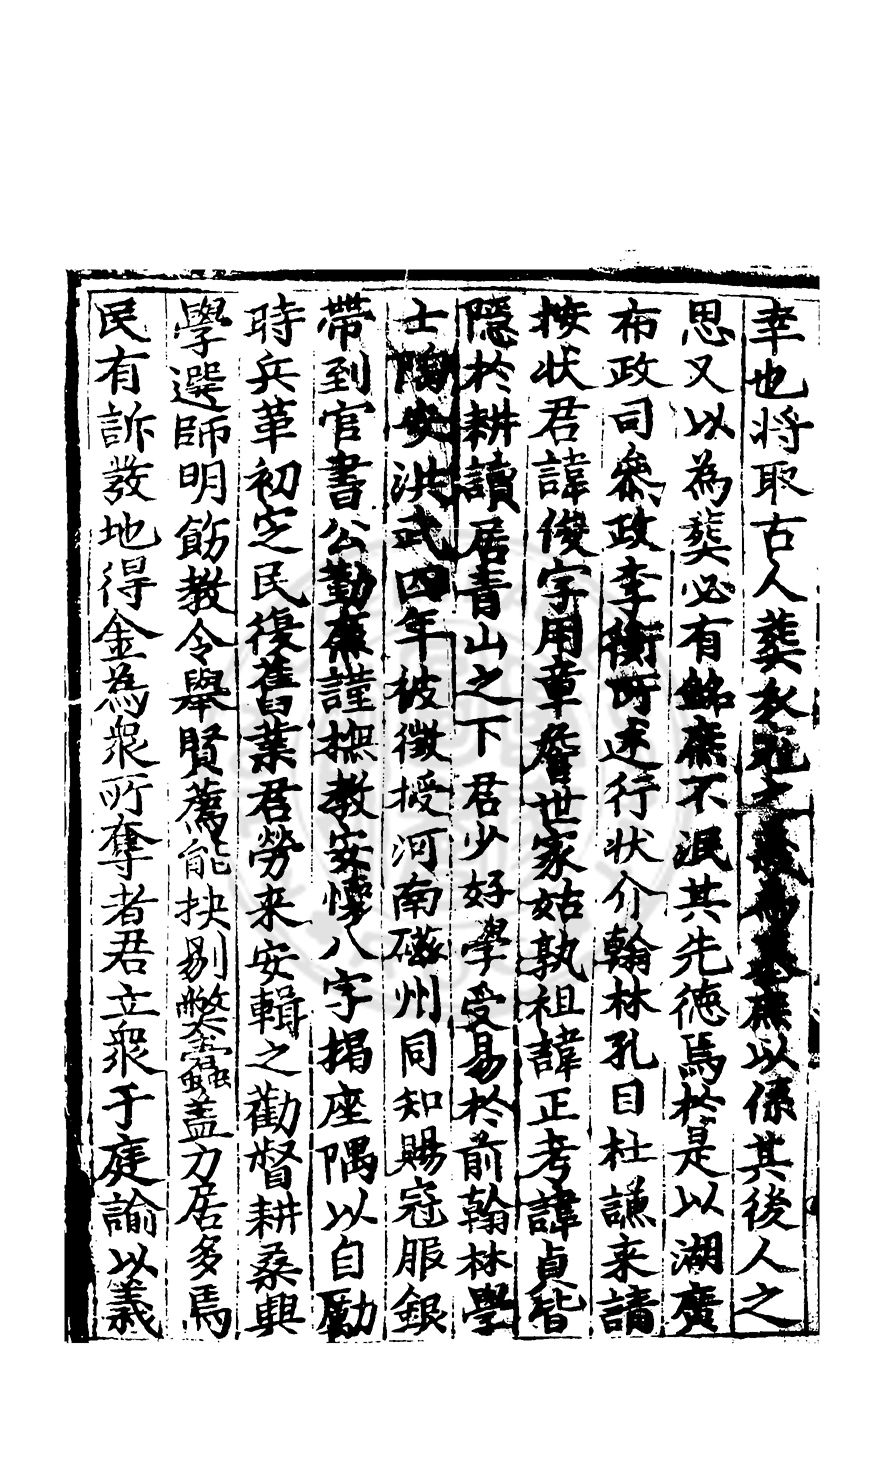 幸也将取古人葬以係其後人之
思又以為葬必有銘庶不泯其先德焉於是以湖廣
布政司叅政李衡所述行状介翰林孔目杜謙来請
按状君諱俊字用章詹世家姑孰祖諱正考諱貞皆
隱於耕讀居青山之下君少好學受易於前翰林學
士陶安洪武四年被徵授河南磁州同知賜冠服銀
帶到官書公勤廉謹撫教安懷八字揭座隅以自勵
時兵革初定民復舊業君勞来安輯之勸督耕桑興
學選師明飭教令舉賢薦能抉剔弊蠹盖力居多焉
民有訴發地得金為衆所奪者君立衆于庭諭以義